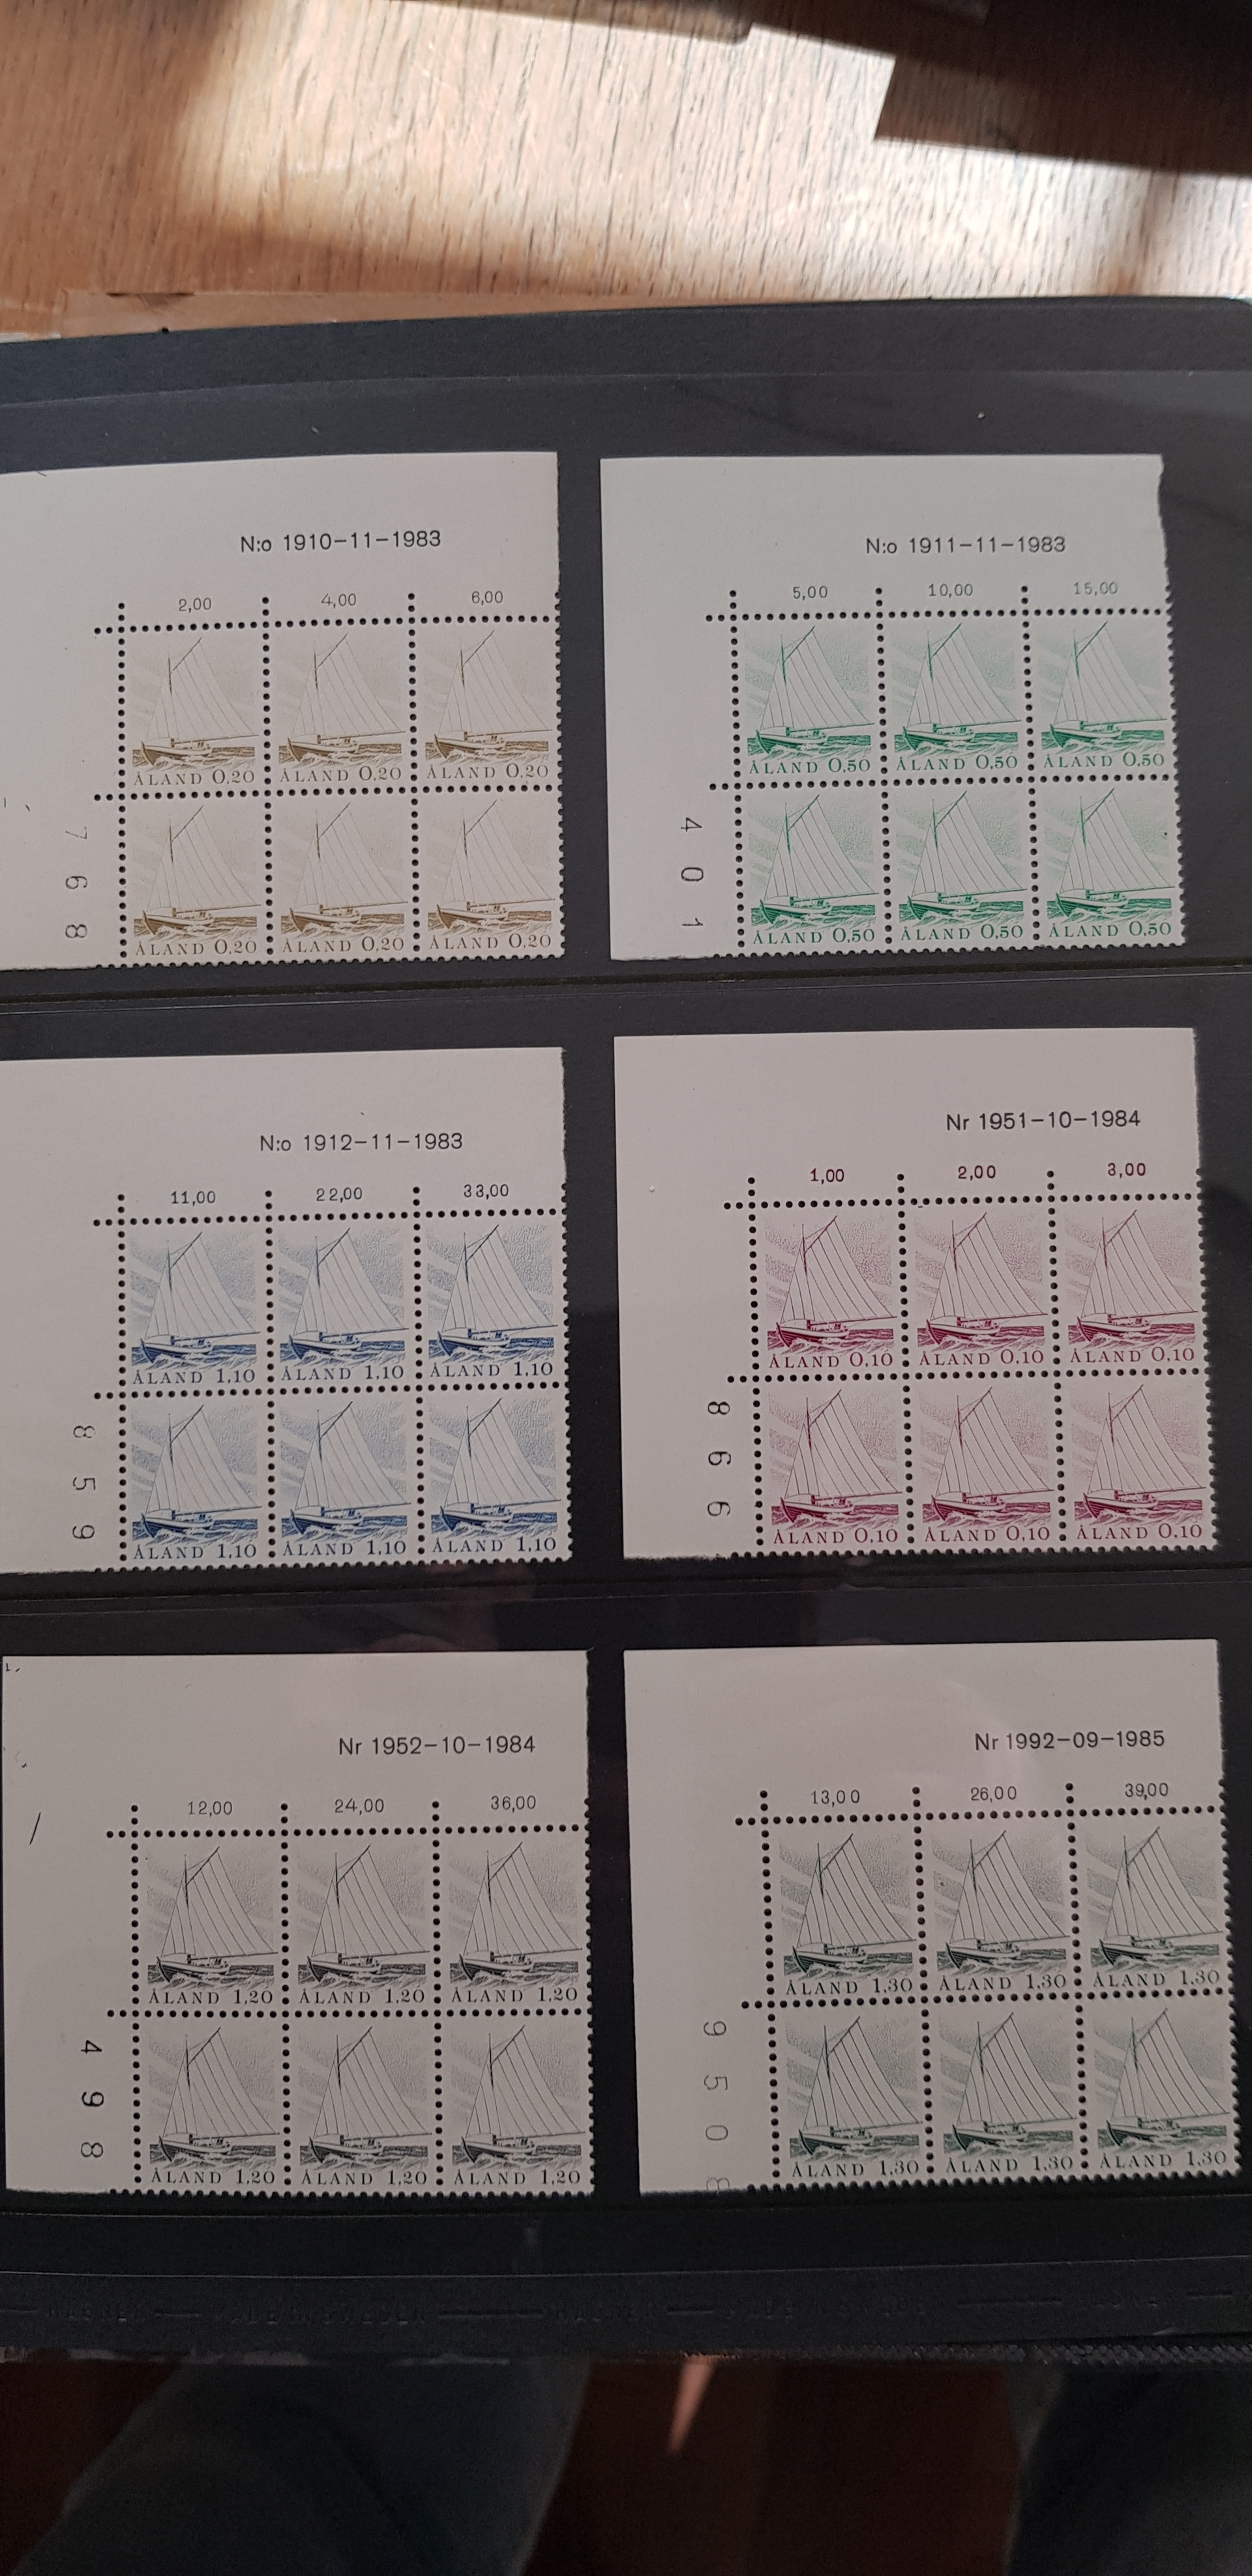 N:o 1910-11-1983
2,00 4,00 6,00
ÅLAND 0,20 ÅLAND 0,20 ÅLAND 0,20
ÅLAND 0,20 ÅLAND 0,20 ÅLAND 0,20
7 6 8
N:o 1911-11-1983
5,00 10,00 15,00
ÅLAND 0,50 ÅLAND 0,50 ÅLAND 0,50
ÅLAND 0,50 ÅLAND 0,50 ÅLAND 0,50
4 0 1
N:o 1912-11-1983
11,00 22,00 33,00
ÅLAND 1,10 ÅLAND 1,10 ÅLAND 1,10
ÅLAND 1,10 ÅLAND 1,10 ÅLAND 1,10
8 5 9
Nr 1951-10-1984
1,00 2,00 3,00
ÅLAND 0,10 ÅLAND 0,10 ÅLAND 0,10
ÅLAND 0,10 ÅLAND 0,10 ÅLAND 0,10
8 6 6
Nr 1952-10-1984
12,00 24,00 36,00
ÅLAND 1,20 ÅLAND 1,20 ÅLAND 1,20
ÅLAND 1,20 ÅLAND 1,20 ÅLAND 1,20
4 9 8
Nr 1992-09-1985
13,00 26,00 39,00
ÅLAND 1,30 ÅLAND 1,30 ÅLAND 1,30
ÅLAND 1,30 ÅLAND 1,30 ÅLAND 1,30
9 5 0 8